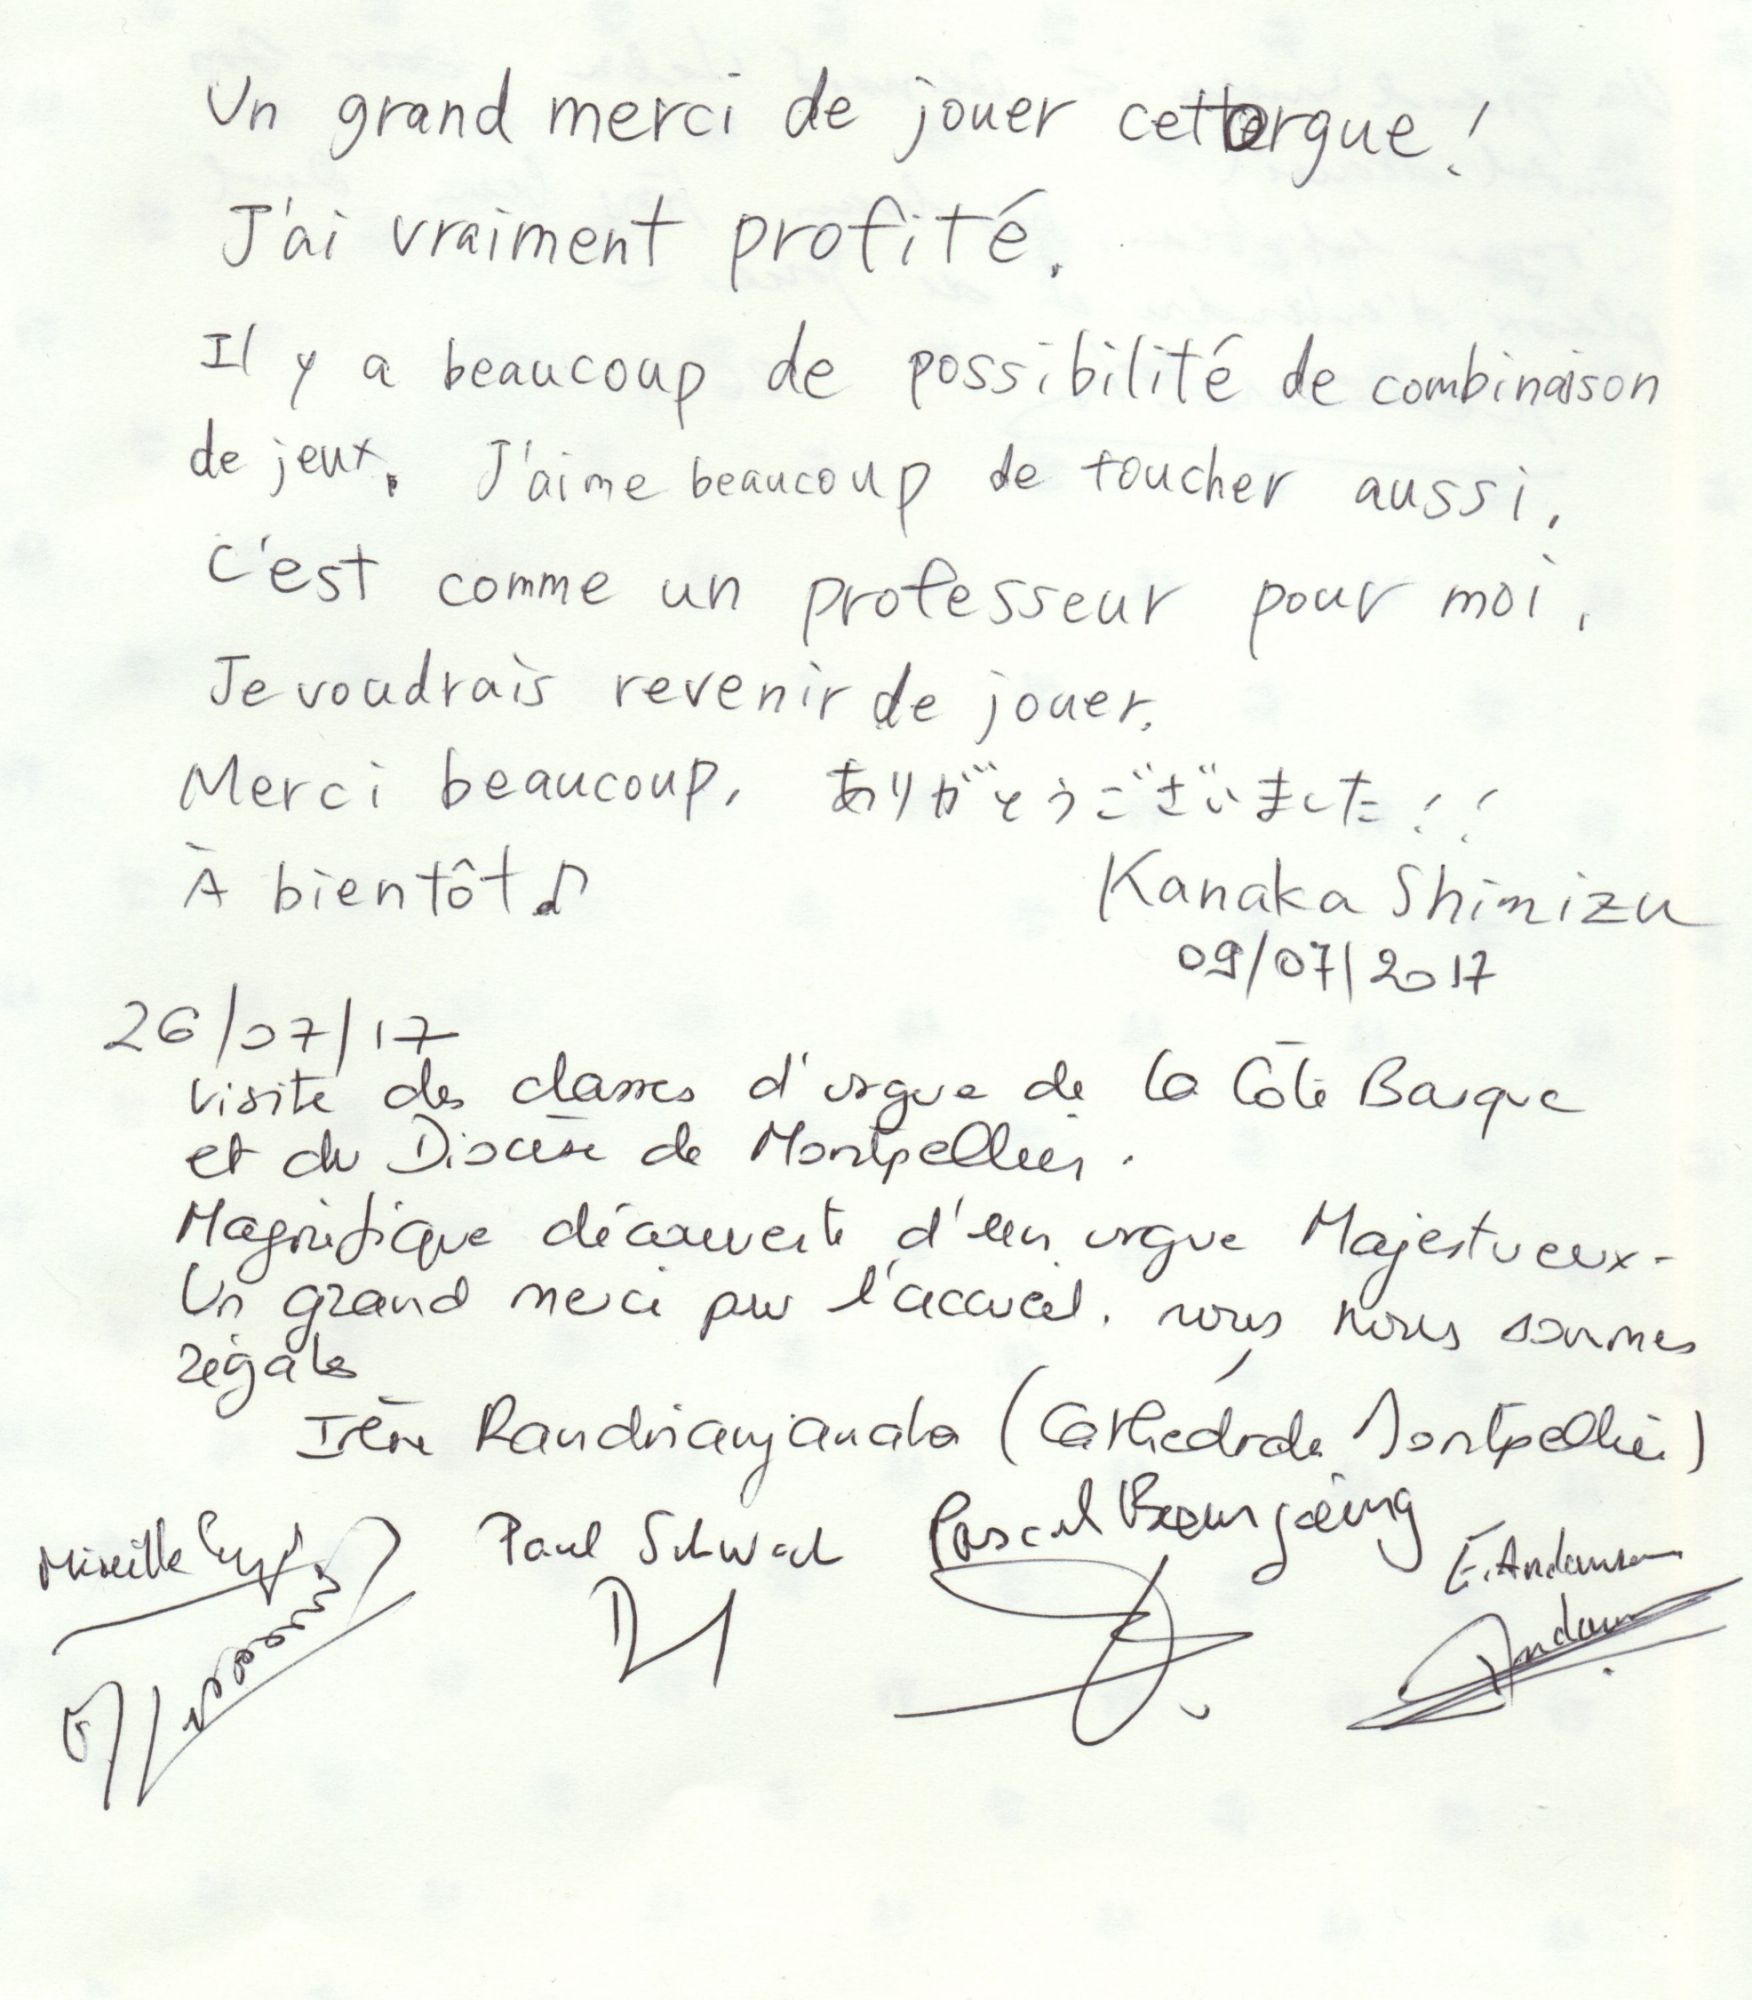 Un grand merci de jouer cet orgue!
J'ai vraiment profité.
Il y a beaucoup de possibilité de combinaison
de jeux. J'aime beaucoup de toucher aussi.
C'est comme un professeur pour moi.
Je voudrais revenir de jouer.
Merci beaucoup. ありがとうございました!!
À bientôt♪
Kanaka Shimizu
09/07/2017
26/07/17
visite des classes d'orgue de la Côte Basque
et du Diocèse de Montpellier.
Magnifique découverte d'un orgue Majestueux-
Un grand merci pour l'accueil. nous nous sommes
régalés
Irène Randrianjanaka (Cathédrale Montpellier)
Mireille
Paul Schwach
Pascal Bourgoing
E. Andanson